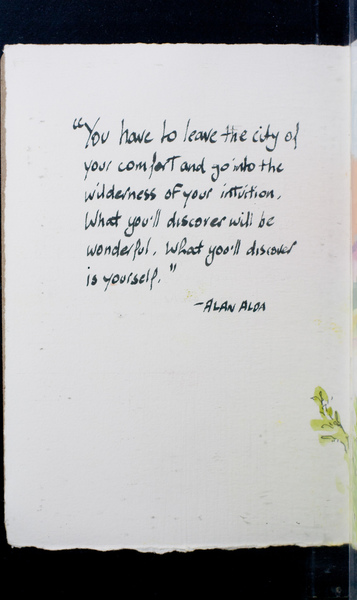 "You have to leave the city of
your comfort and go into the
wilderness of your intuition.
What you'll discover will be
wonderful. What you'll discover
is yourself."
-ALAN ALDA